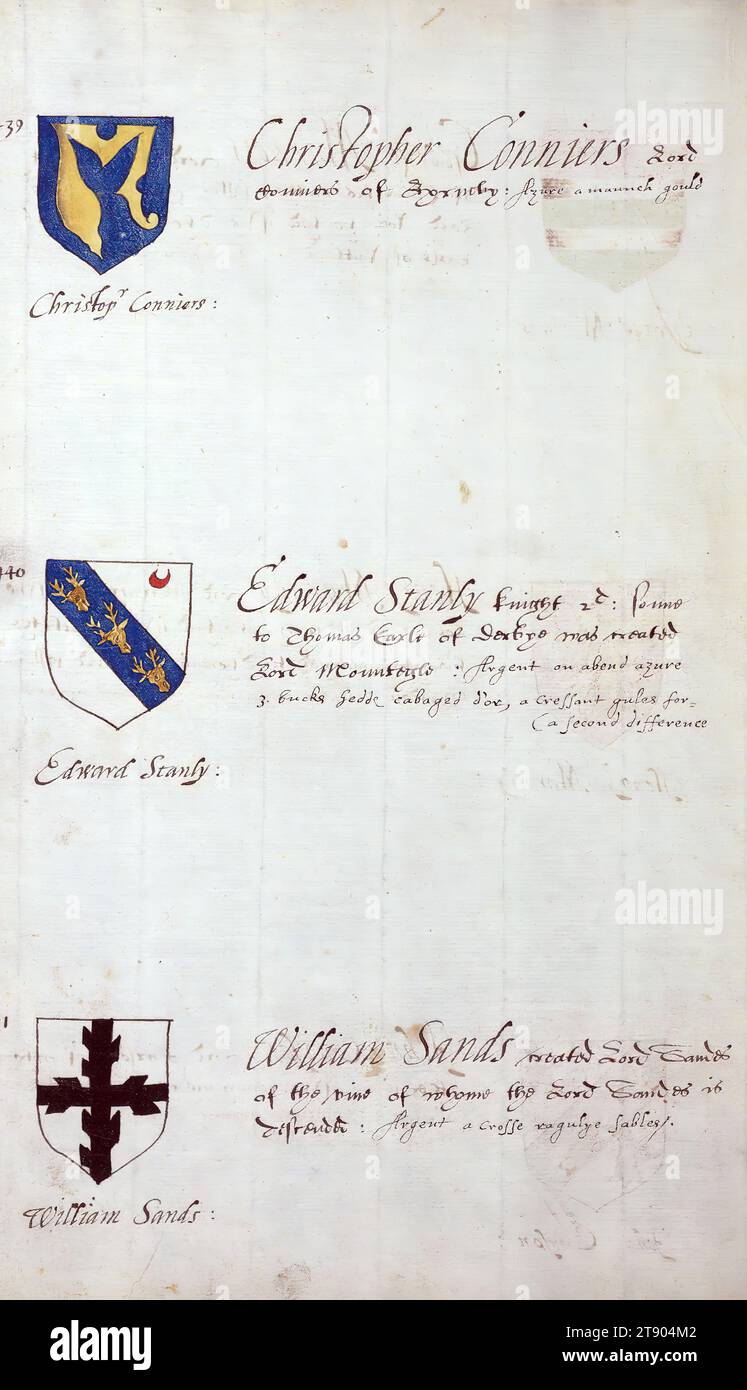 39
Christopher Conniers Lord
Conniers of Horneby: Azure a maunch gould
Christopr Conniers:
40
Edward Stanly knight 2d: sonne
to Thomas Earle of Derbye was created
Lord Mountegle: Argent on a bend azure
3. bucks hedde cabaged d'or, a cressant gules for=
(a second difference
Edward Stanly:
1
William Sands created Lord Sandes
of the vine of whome the Lord Sandes is
descended: Argent a crosse ragulye sables/.
William Sands:
alamy
alamy
alamy
alamy
Image ID: 2T904M2
www.alamy.com